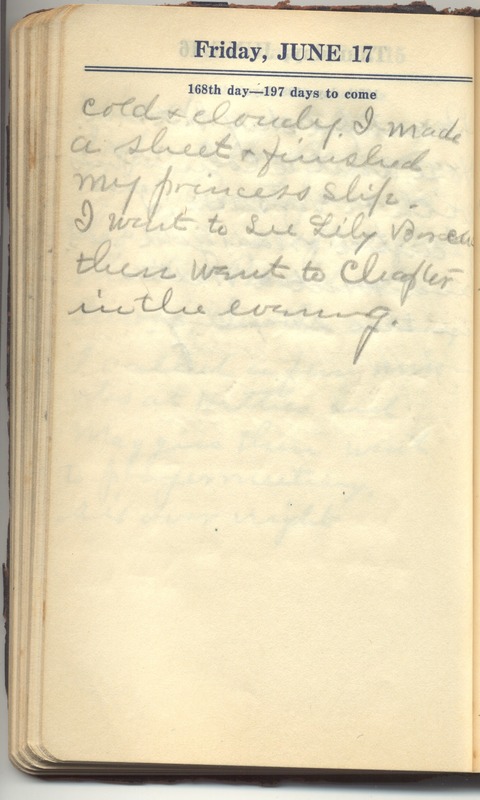 Friday, JUNE 17
168th day—197 days to come
cold & cloudy. I made
a sheet & finished
my princess slip.
I went to see Lily
then went to Chapter
in the evening.